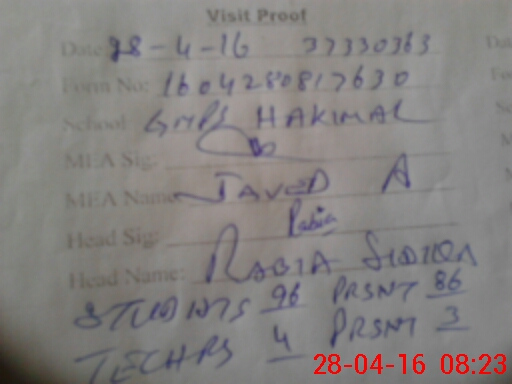 Visit Proof
Date: 28-4-16 37330363
Form No: 1604280817630
School GMPS HAKIMAL
MEA Sig:
MEA Name JAVED A
Head Sig: Rabia
Head Name: RABIA
STUDNTS 96 PRSNT 86
TECHRS 4 PRSNT 3
28-04-16 08:23